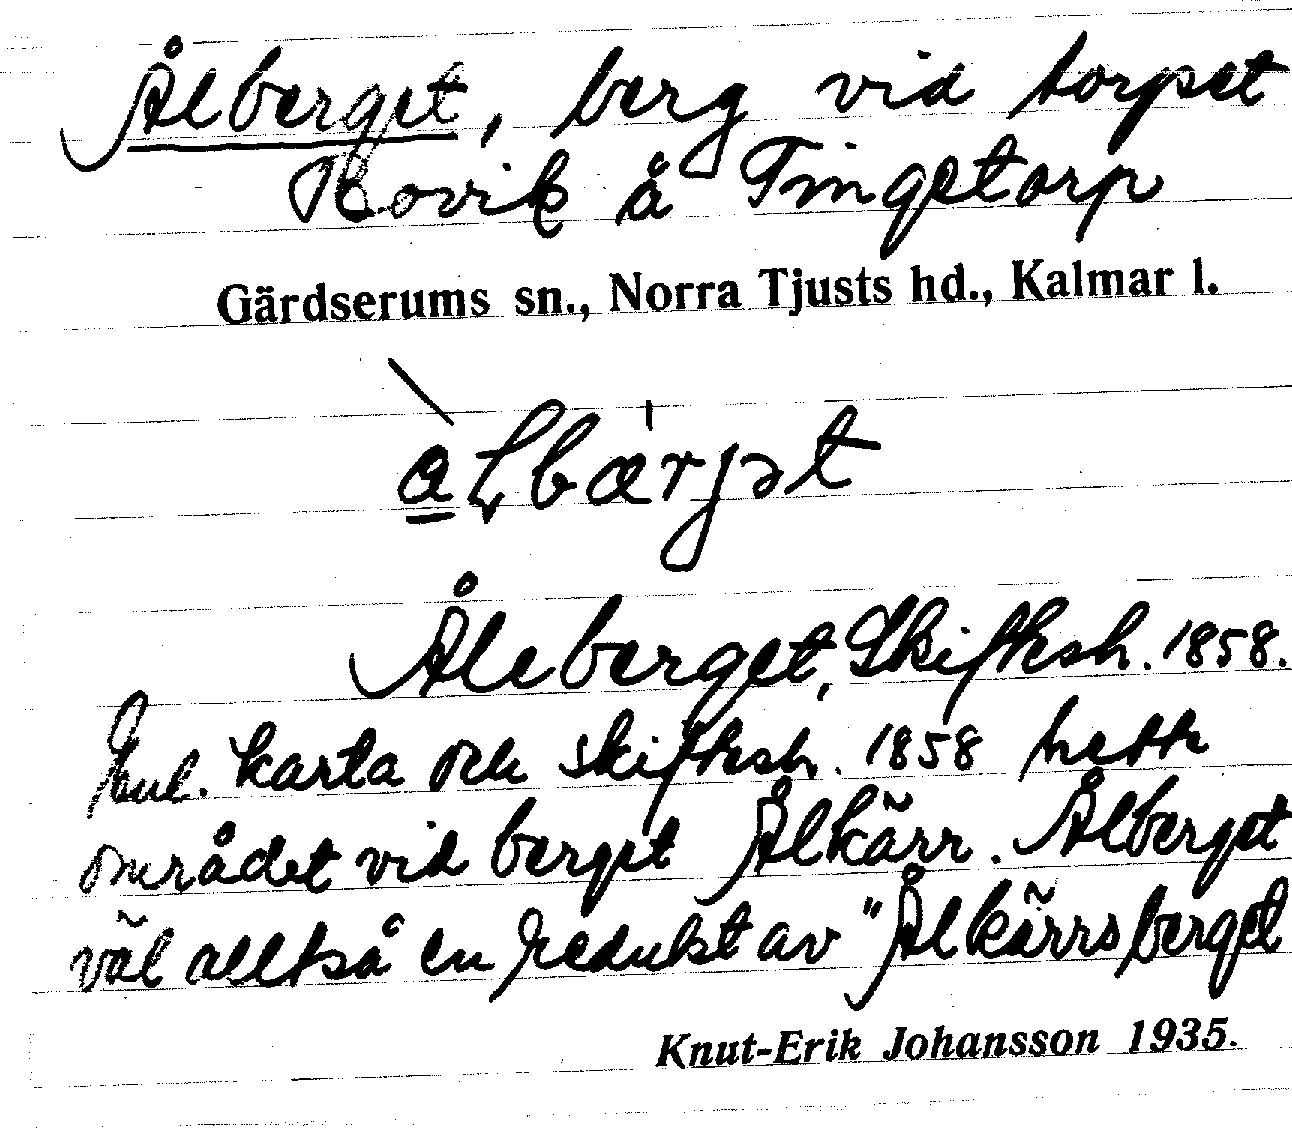 Ålberget, berg vid torpet
Rovik å Tingstorp
Gärdserums sn., Norra Tjusts hd., Kalmar l.
Åleberget, Skiftesh. 1858.
Enl. karta och skiftesh. 1858 hette
området vid berget Ålkärr. Ålberget
väl alltså en redukt av "Ålkärrsberget
Knut-Erik Johansson 1935.